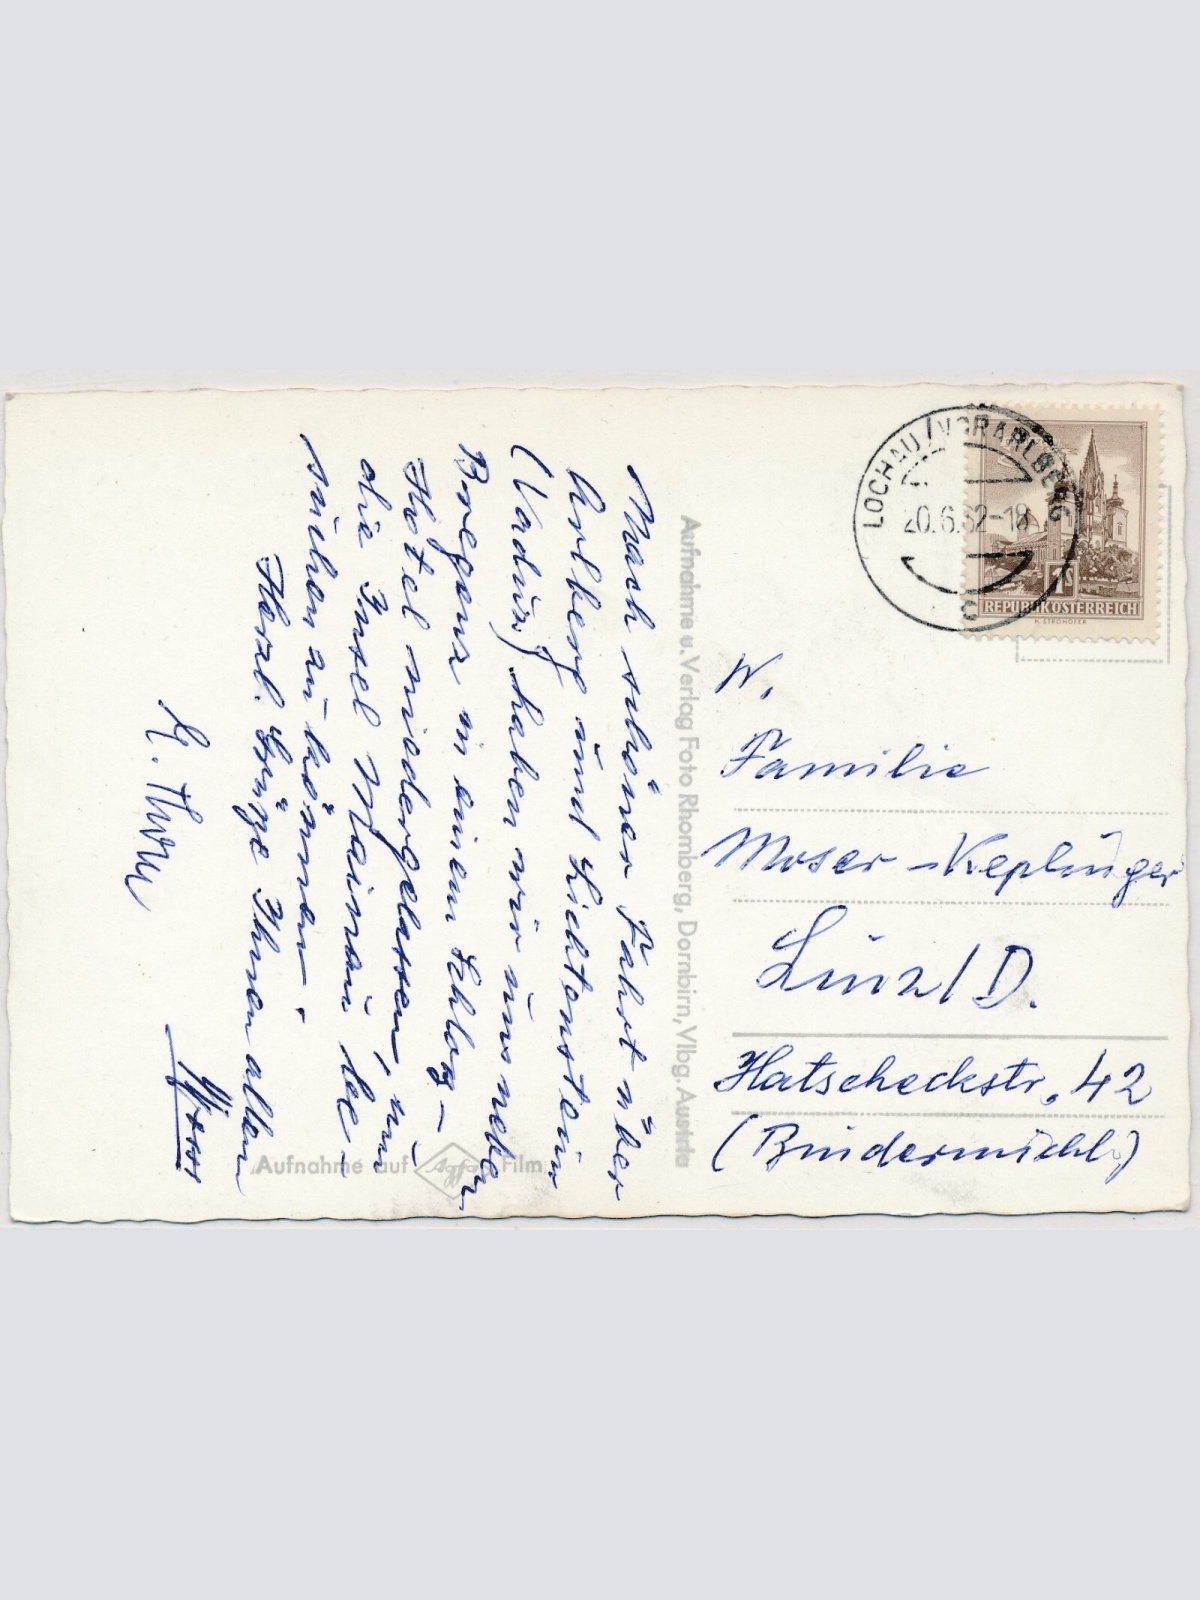 Nach schöner Fahrt über
Arlberg und Lichtenstein
(Vaduz) haben wir uns neben
Bregenz in einem Schloß-
Hotel niedergelassen, um
die Insel Mainau be-
suchen zu können.
Herzl. Grüße Ihnen allen
Aufnahme u. Verlag Foto Rhomberg, Dornbirn, Vlbg. Austria
Aufnahme auf Agfa Film
LOCHAU (VORARLBERG)
20.6.62-18
c
1S
REPUBLIK ÖSTERREICH
H. STROHOFER
W.
Familie
Moser-Keplinger
Linz/D.
Hatscheckstr. 42
(Bindermichl)